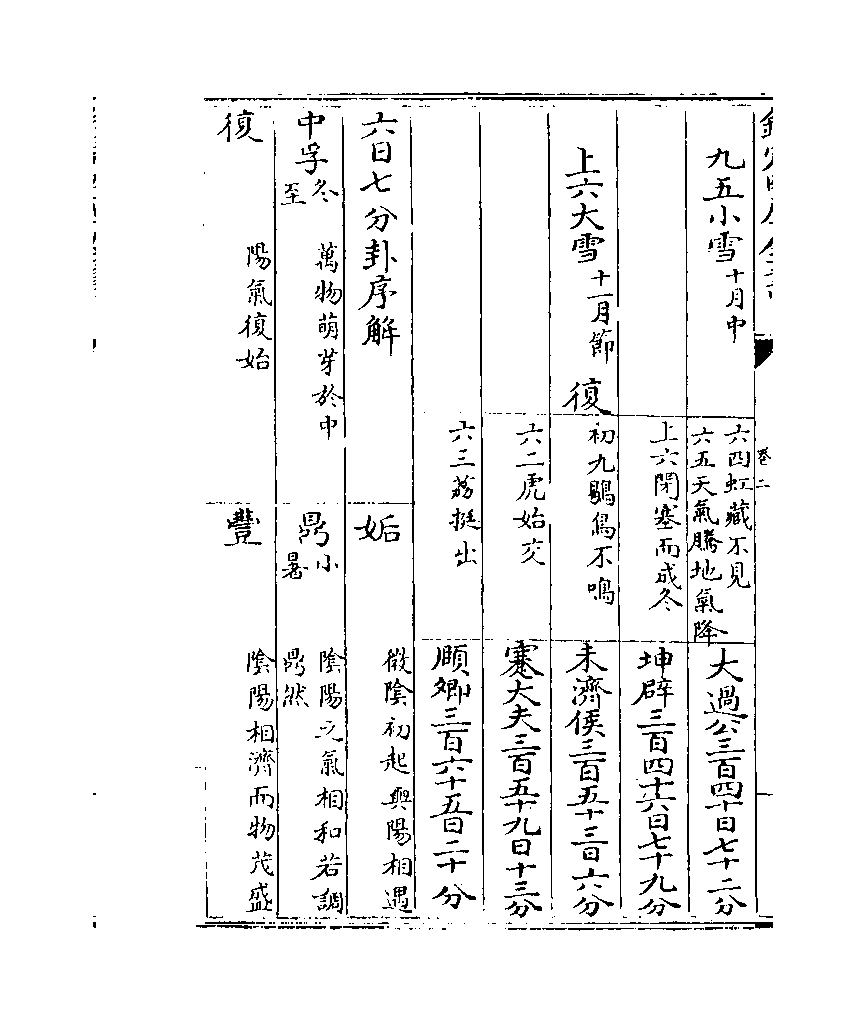 九五小雪十月中
六四虹藏不見
六五天氣騰地氣降
大過公三百四十日七十二分
上六閉塞而成冬
坤辟三百四十六日七十九分
上六大雪十一月節
復
初九鶡鳥不鳴
未濟侯三百五十三日六分
六二虎始交
蹇大夫三百五十九日十三分
六三荔挺出
頤卿三百六十五日二十分
六日七分卦序解
姤
微陰初起與陽相遇
中孚冬至
萬物萌芽於中
鼎小暑
陰陽之氣相和若調
鼎然
復
陽氣復始
豐
陰陽相濟而物茂盛
卷二